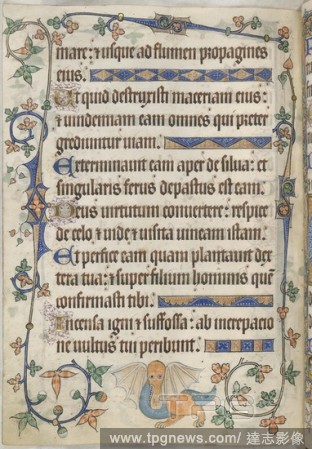 mare: ⁊ usque ad flumen propagines
eius.
Ut quid destruxisti maceriam eius:
⁊ uindemiant eam omnes qui preter
grediuntur uiam.
Exterminauit eam aper de silua: et
singularis ferus depastus est eam.
Deus uirtutum conuertere: respice
de celo ⁊ uide ⁊ uisita uineam istam.
Et perfice eam quam plantauit dex
tera tua: ⁊ super filium hominis que̅
confirmasti tibi.
Incensa igni ⁊ suffossa: ab increpacio
ne uultus tui peribunt.
TPG
www.tpgnews.com/ 達志影像